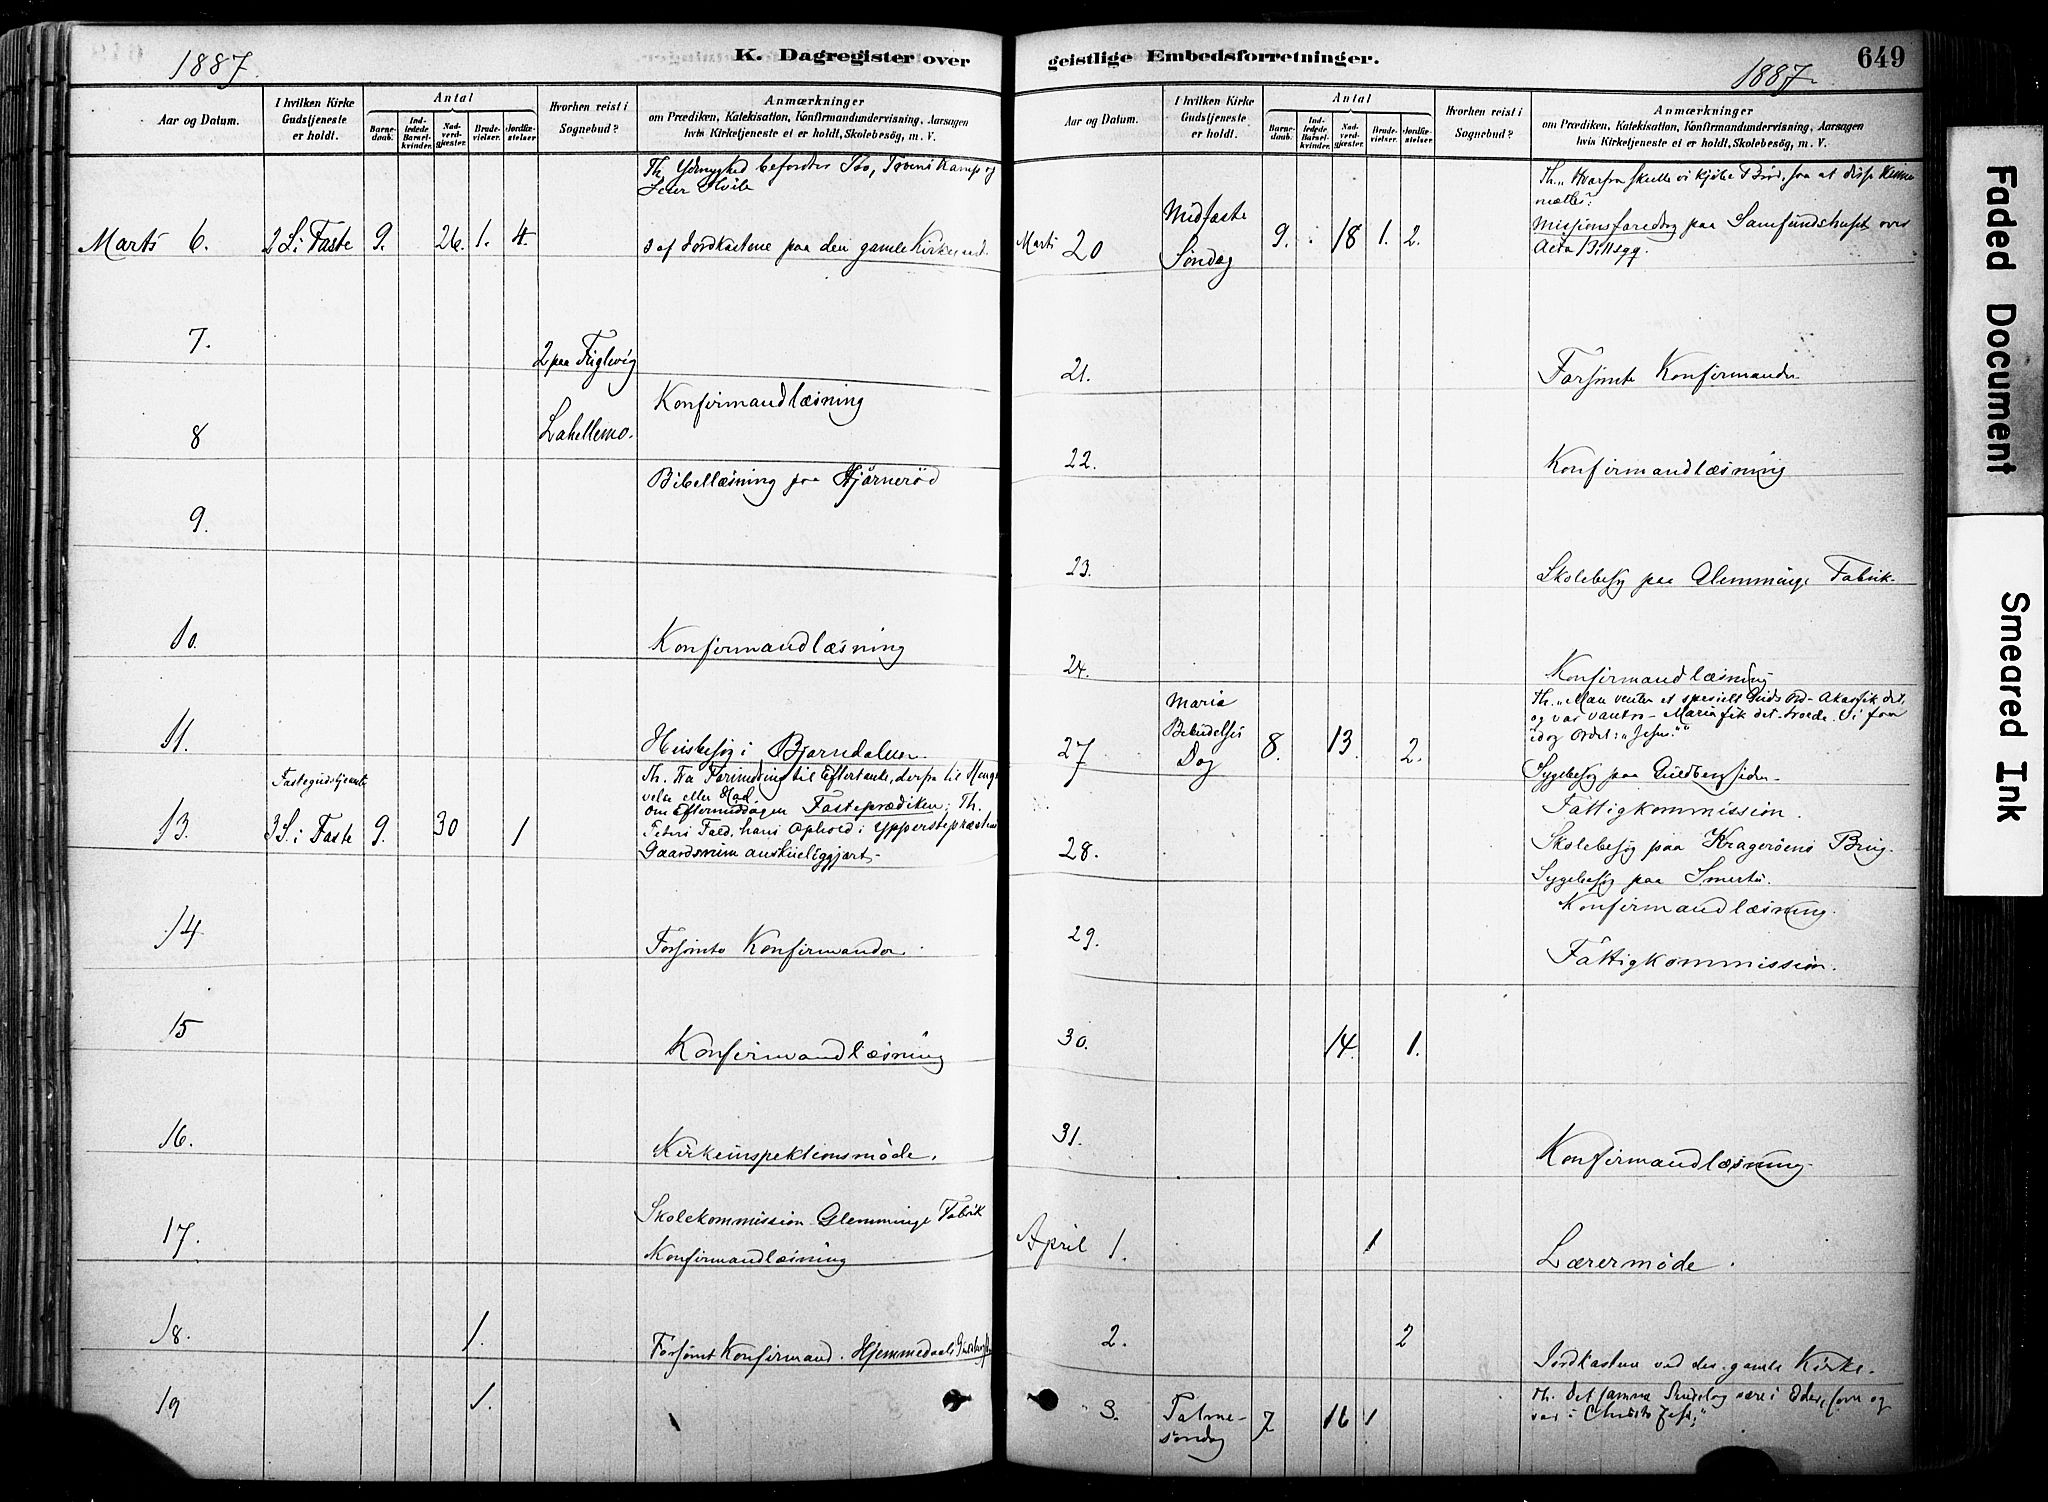 1887.
K. Dagregister over
Aar og Datum.
I hvilken Kirke Gudstjeneste er holdt.
Antal
Barnedaab.
Indledede Barselkvinder.
Nadverdgjæster.
Brudevielser.
Jordfæstelser.
Hvorhen reist i Sognebud?
Anmærkninger
om Prædiken, Katekisation, Konfirmandundervisning, Aarsagen
hvis Kirketjeneste et er holdt, Skolebesøg, m. V.
Th. Ydmyghed befordrer Tro, Troens Kamp og
Seier Hvile
Marts 6. 2 S. i Faste 9. 26. 1. 4. 3 af Jordkastene paa den gamle
7. 2 paa Fuglevig
Konfirmandlæsning
8 Lahellemo.
Bibellæsning paa Hjørnerød
9.
10. Konfirmandlæsning
11. Husbesøg i Bjørndalen
Fastegudstjeneste
Th. Fra Forundring til Eftertanke, derpaa til
velse eller Had.
om Eftermiddagen Fasteprædiken; Th.
13. 3 S. i Faste 9. 30 1 Petri Fald, hans Ophold i Ypperstepræstens
Gaardsrum anskueliggjørt.
14. Forsømte Konfirmander.
15 Konfirmandlæsning
16. Kirkeinspektionsmøde.
Skolekommission Glemminge Fabrik
17. Konfirmandlæsning
18. 1. Forsømt Konfirmand. Hjemmedaab
19 1.
geistlige Embedsforretninger.
649
1887.
Aar og Datum.
I hvilken Kirke Gudstjeneste er holdt.
Antal
Barnedaab.
Indledede Barselkvinder.
Nadverdgjæster.
Brudevielser.
Jordfæstelser.
Hvorhen reist i Sognebud?
Anmærkninger
om Prædiken, Katekisation, Konfirmandundervisning, Aarsagen
hvis Kirketjeneste et er holdt, Skolebesøg, m. V.
Th. "Hvorfra skulle vi kjøbe Brød, saa at disse kunne
mættes?
Marts 20 Midfaste Søndag 9. 18 1. 2. Missionsforedrag paa Samfundshuset over
Acta
21. Forsømte Konfirmander
22. Konfirmandlæsning
23. Skolebesøg paa Glemminge Fabrik.
24. Konfirmandlæsning
Th. "Man venter et specielt Guds Ord - Akas fik det,
og var vantro - Maria fik det - troede. Vi faa
idag Ordet: "Jesus.""
27 Maria Bebudelses Dag 8. 13 2. Sygebesøg paa Guldbergsiden
Fattigkommission.
28. Skolebesøg paa Kragerøens Brug.
Sygebesøg paa Smertu.
Konfirmandlæsning.
29. Fattigkommission.
30. 14. 1.
31. Konfirmandlæsning
April 1. 1 Lærermøde.
2. 2 Jordkasten ved den gamle Kirke.
3. Palmesøndag 7 16 1 Th. Det samme Sindelag være i Eder, som og
var i Christo Jesu,"
Faded Document
Smeared Ink